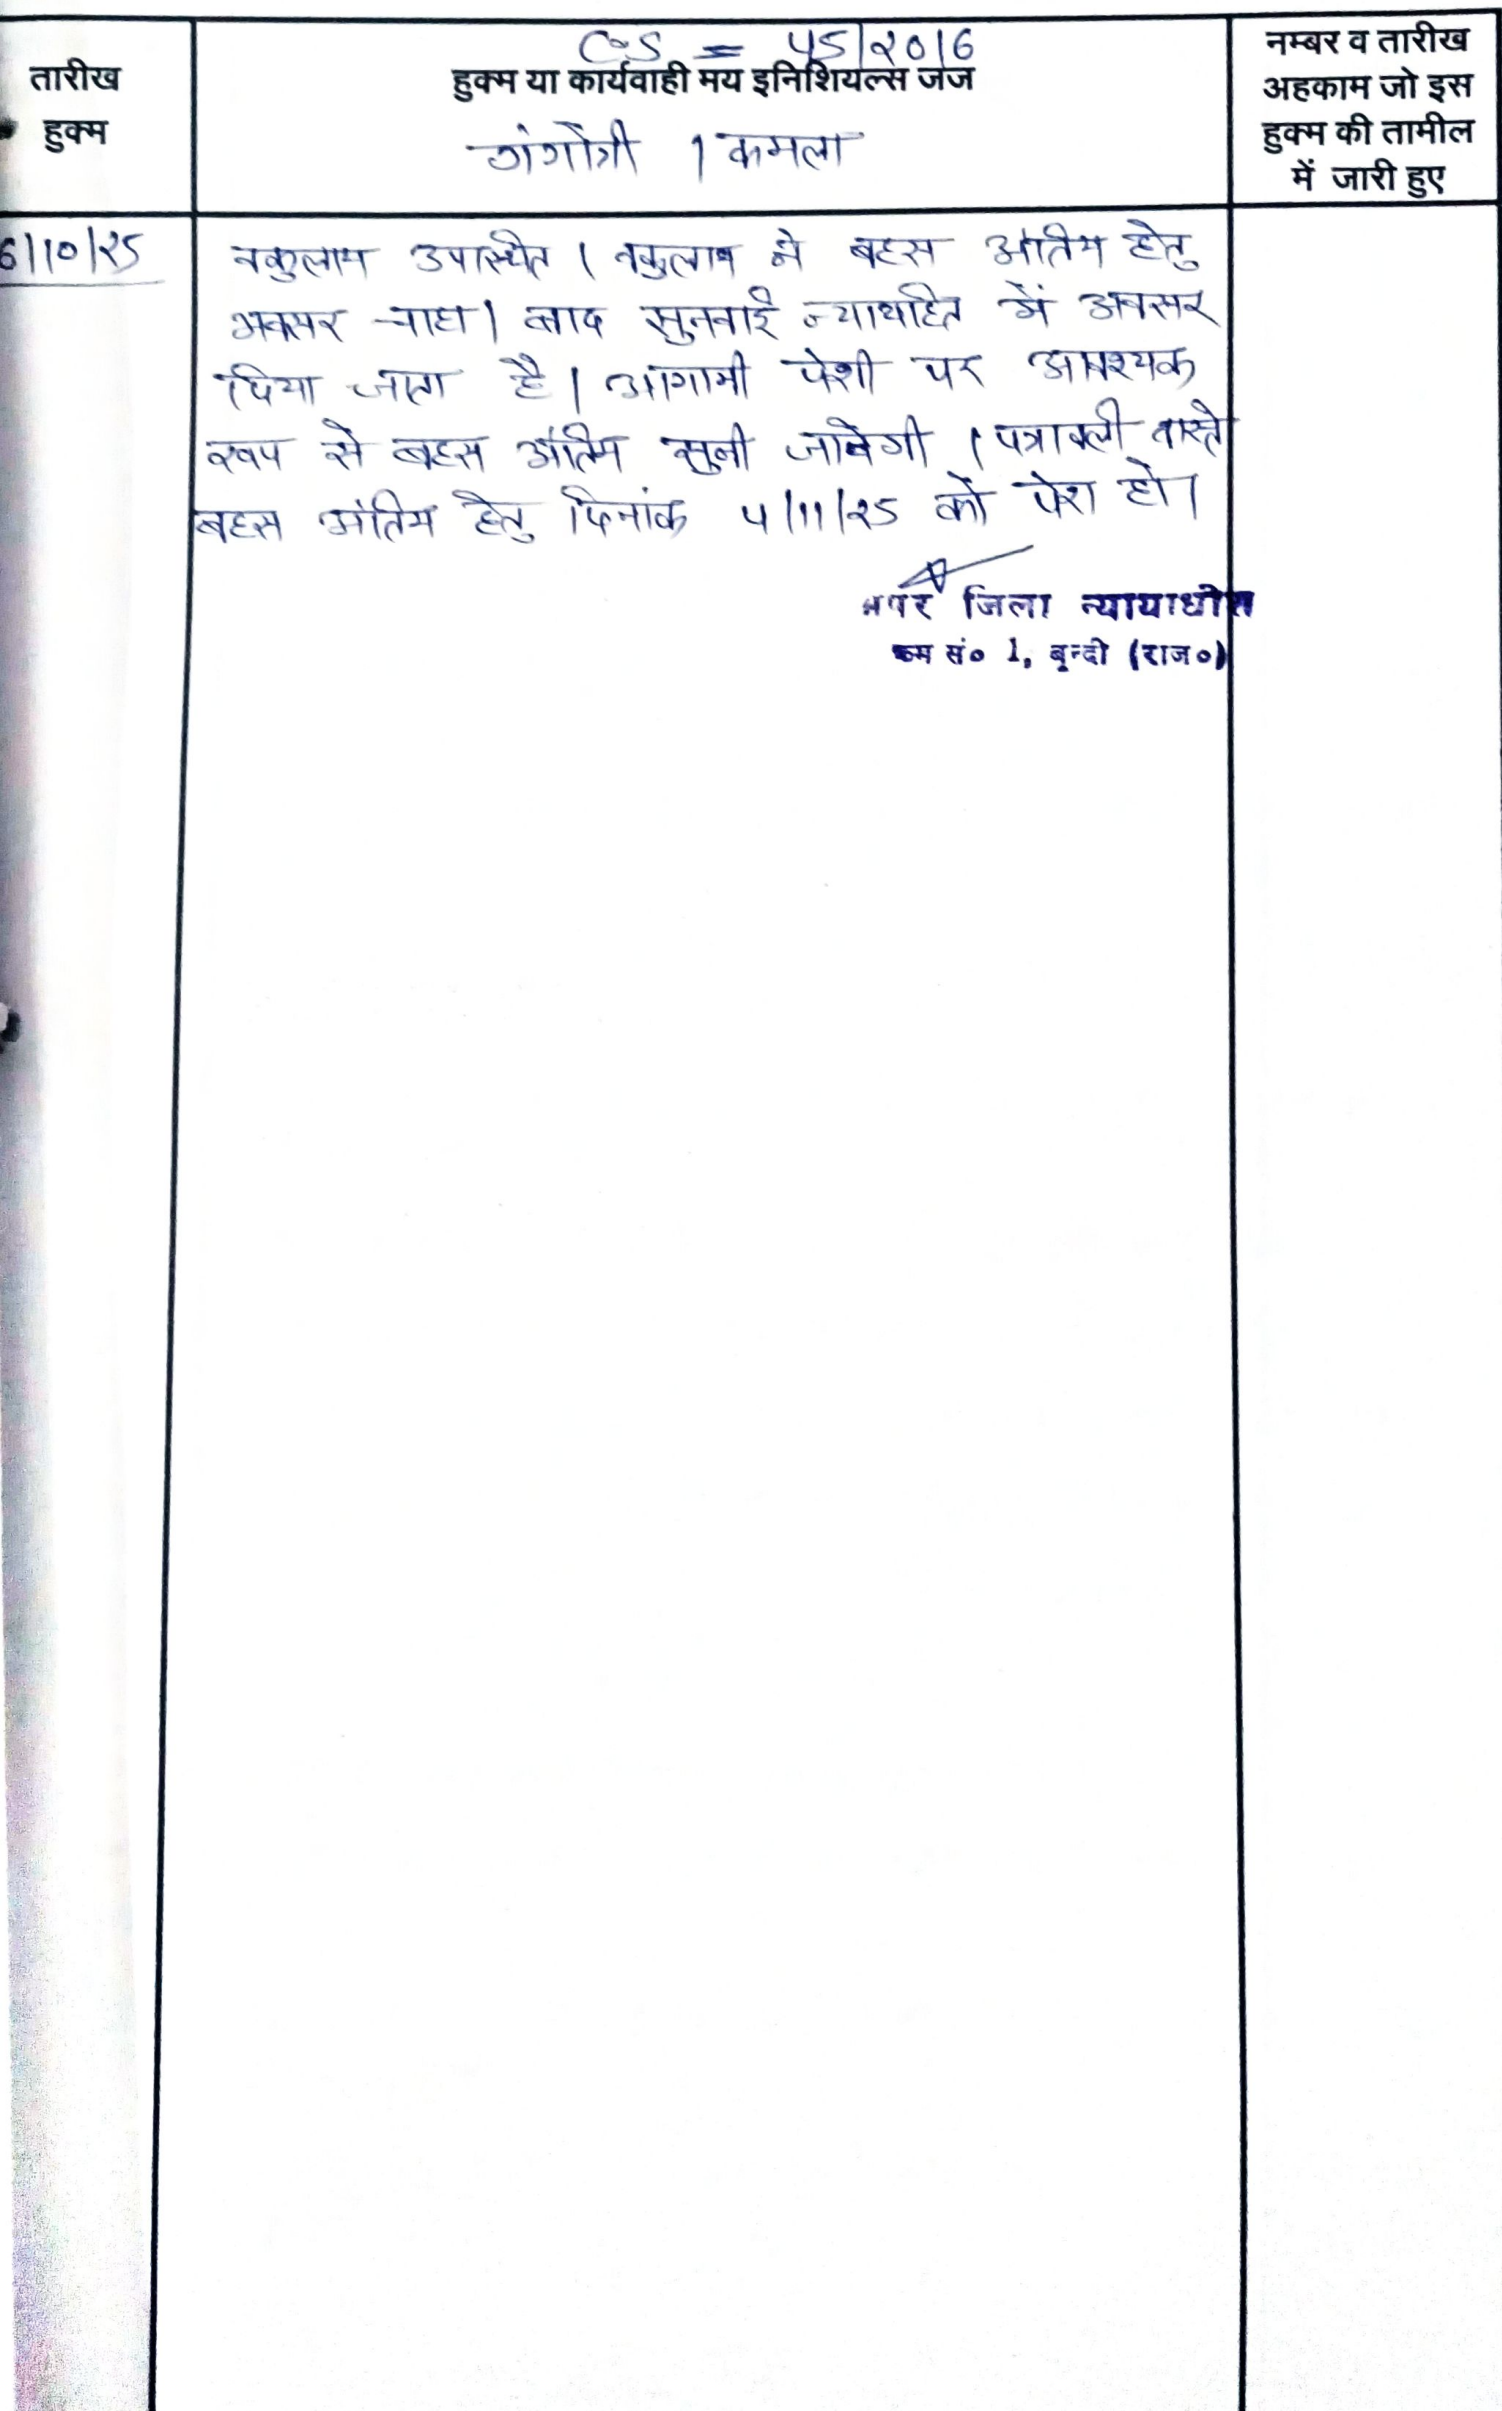 C.S = 45/2016
तारीख
हुक्म
हुक्म या कार्यवाही मय इनिशियल्स जज
गंगोत्री । कमला
नम्बर व तारीख
अहकाम जो इस
हुक्म की तामील
में जारी हुए
6/10/25
वकुलाय उपस्थित । वकुलाय ने बहस अंतिम हेतु
अवसर चाहा। बाद सुनवाई न्यायहित में अवसर
दिया जाता है। आगामी पेशी पर आवश्यक
रूप से बहस अंतिम सुनी जावेगी । पत्रावली वास्ते
बहस अंतिम हेतु दिनांक 4/11/25 को पेश हो।
अपर जिला न्यायाधीश
क्रम सं० 1, बून्दी (राज०)